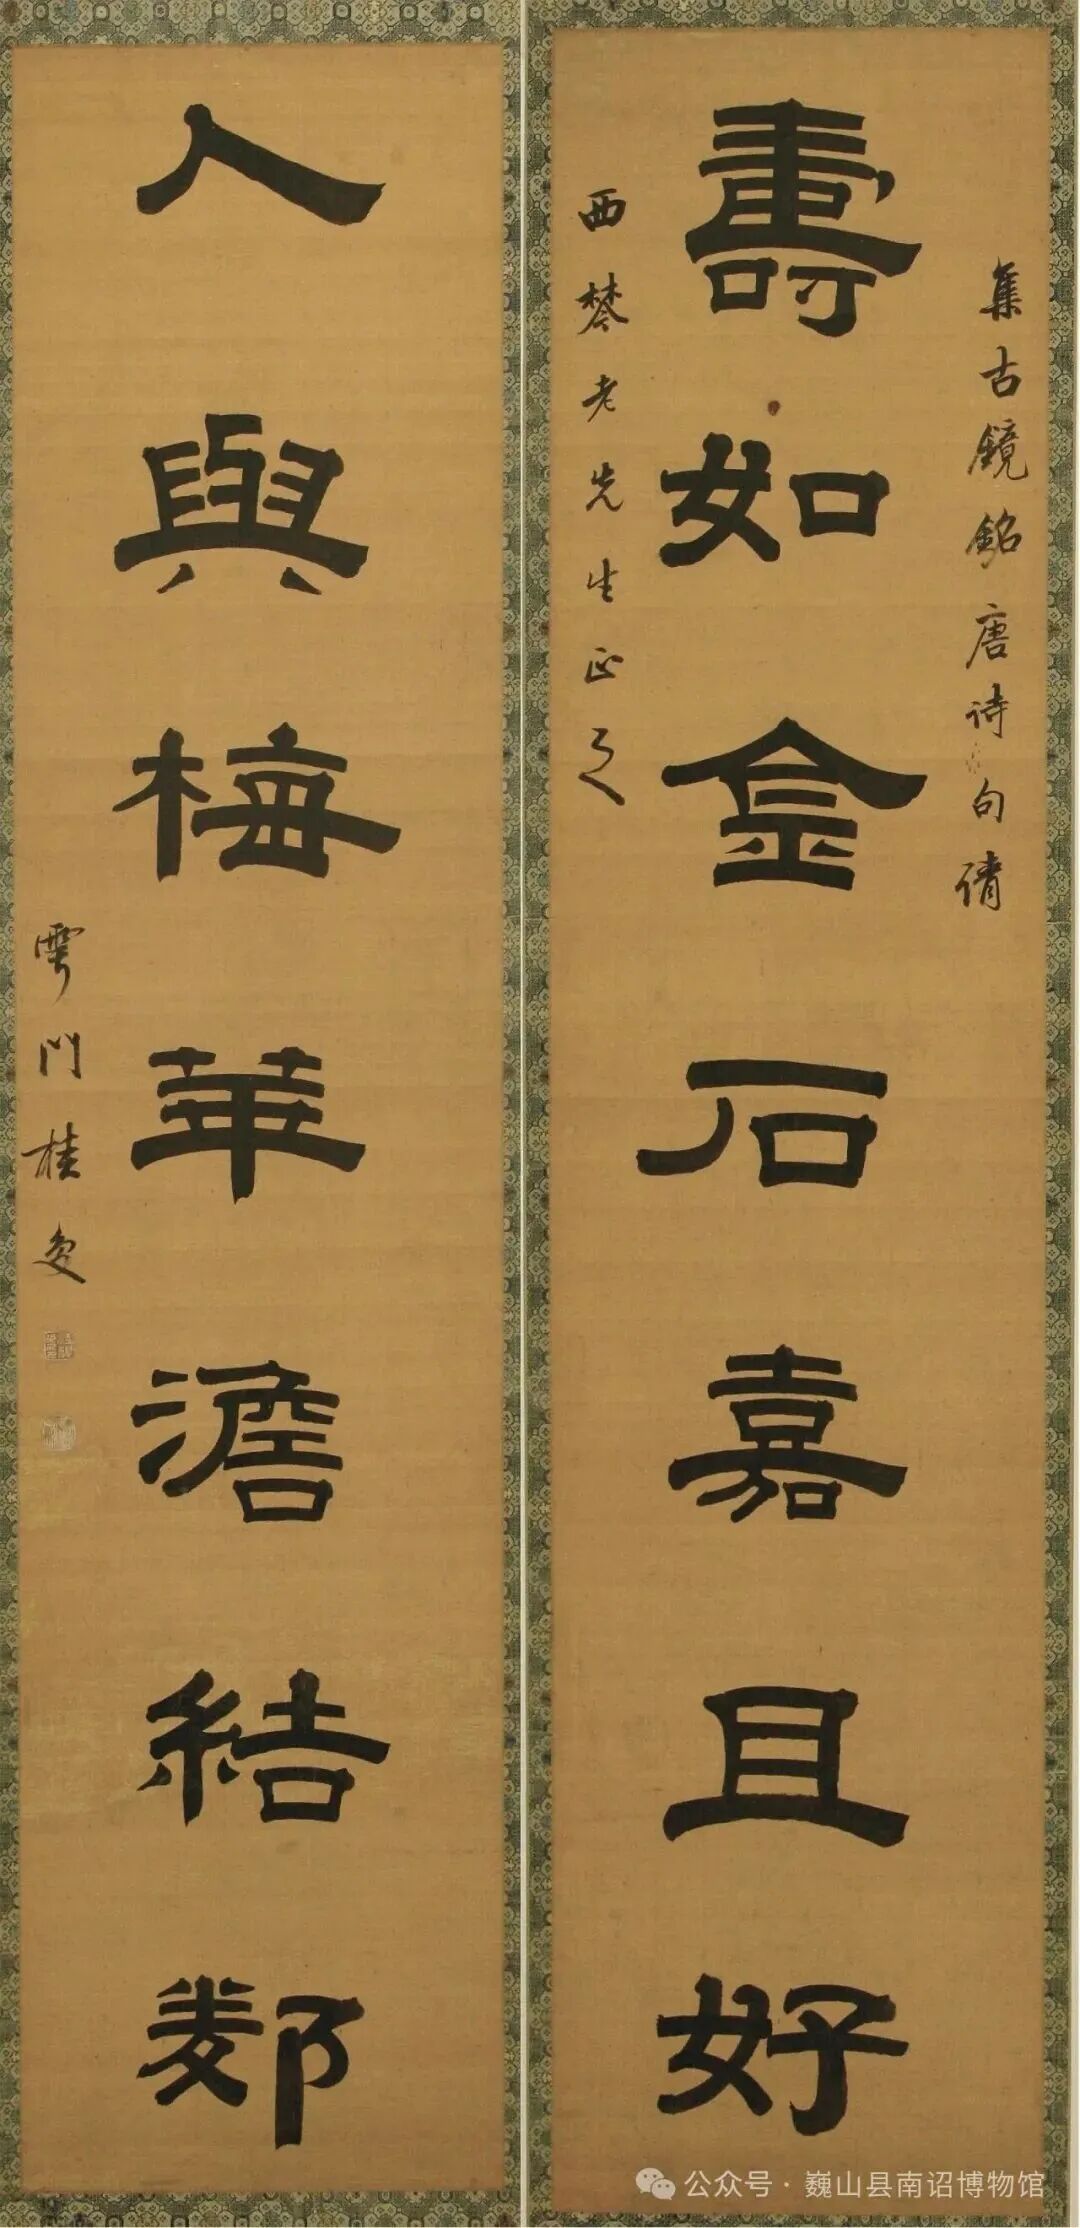 集古鏡銘唐詩句倩
壽如金石嘉且好
西琴老先生正之
人與梅華澹結鄰
雩門桂馥
公众号·巍山县南诏博物馆